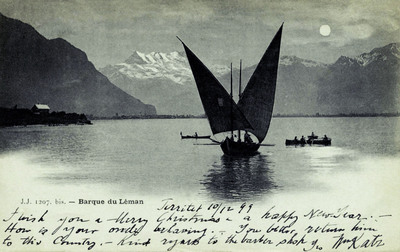 J.J. 1207. bis. — Barque du Léman
Territet 10/12 99
I wish you a Merry Christmas & a happy New Year. —
How is your only behaving. — You better return him
to this Country. — Kind regards to the barber shop